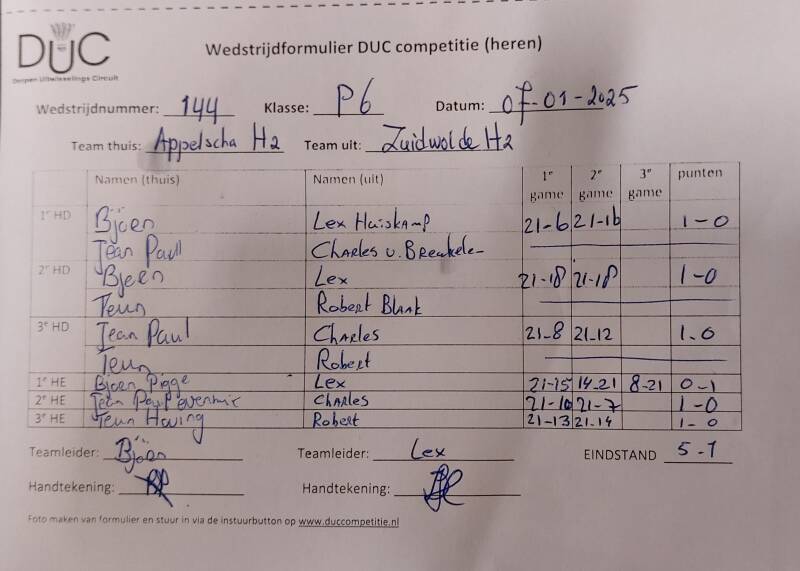 DUC
Dorpen Uitwisselings Circuit
Wedstrijdformulier DUC competitie (heren)
Wedstrijdnummer: 144 Klasse: P6 Datum: 07-01-2025
Team thuis: Appelscha H2 Team uit: Zuidwolde H2
Namen (thuis) Namen (uit) 1e game 2e game 3e game punten
1e HD Bjöen Lex Huiskamp 21-6 21-16 1-0
Jean Paul Charles v. Breukele
2e HD Bjeen Lex 21-18 21-18 1-0
Teun Robert Blaak
3e HD Jean Paul Charles 21-8 21-12 1-0
Teun Robert
1e HE Bjoen Pigge Lex 21-15 14-21 8-21 0-1
2e HE Jean Paul Charles 21-10 21-7 1-0
3e HE Teun Having Robert 21-13 21-14 1-0
Teamleider: Bjöen Teamleider: Lex EINDSTAND 5-1
Handtekening: Handtekening:
Foto maken van formulier en stuur in via de instuurbutton op www.duccompetitie.nl